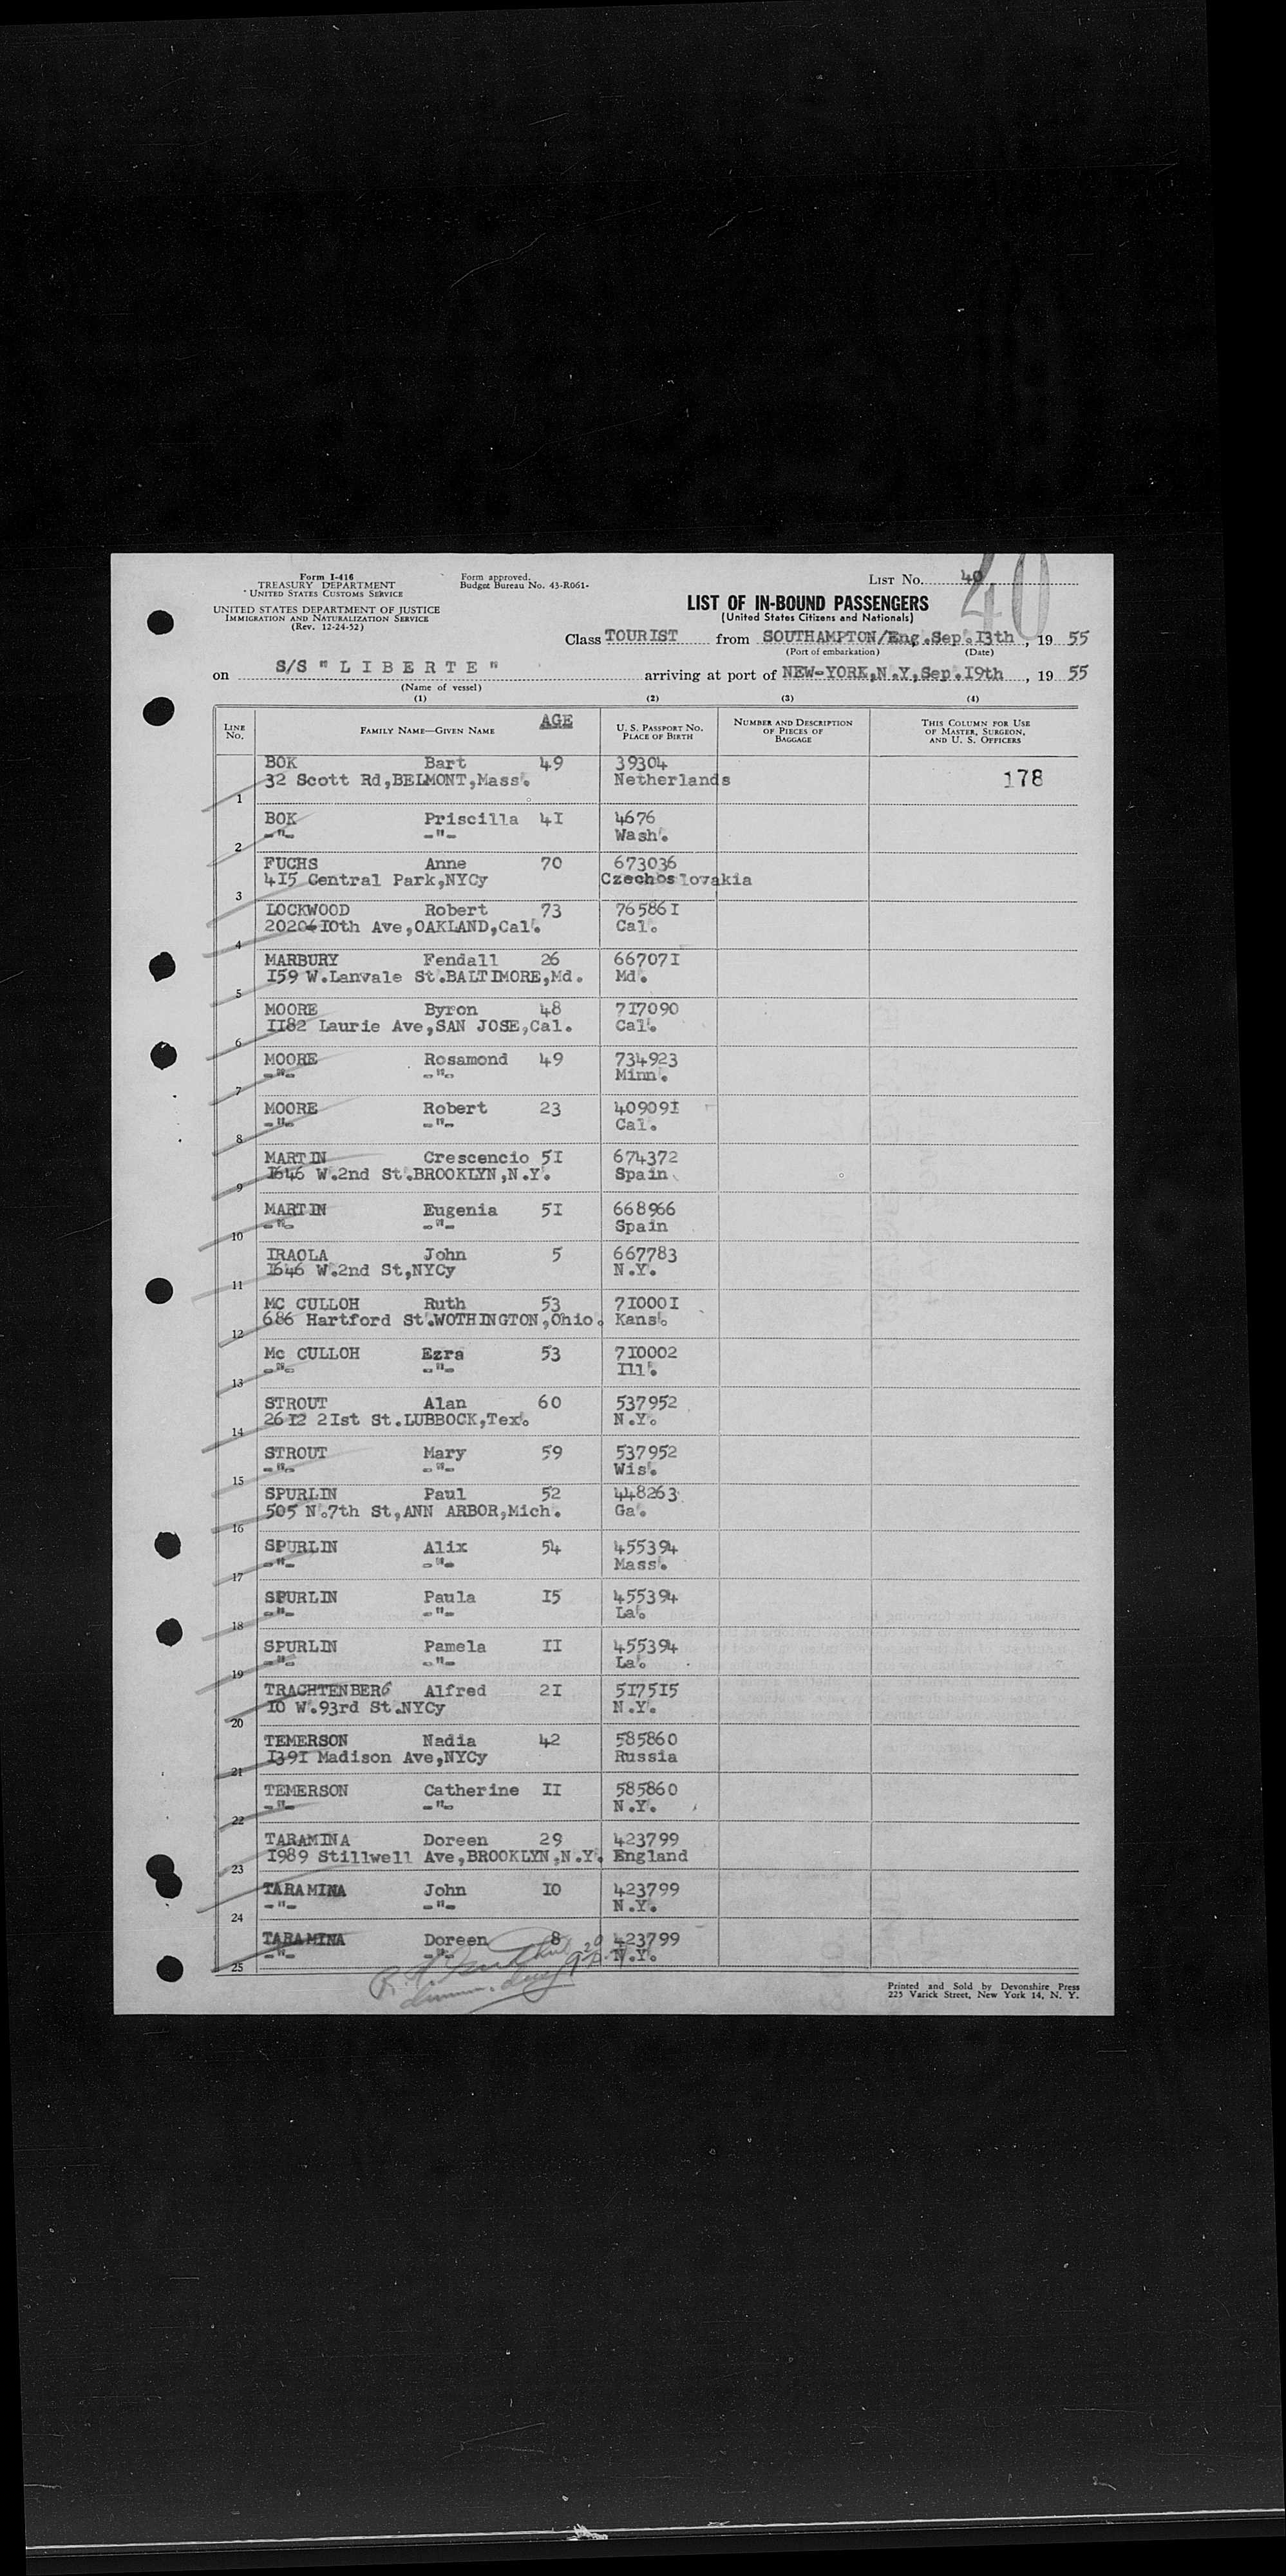 Form I-416
TREASURY DEPARTMENT
UNITED STATES CUSTOMS SERVICE
UNITED STATES DEPARTMENT OF JUSTICE
IMMIGRATION AND NATURALIZATION SERVICE
(Rev. 12-24-52)
Form approved.
Budget Bureau No. 43-R061-
LIST No. 40
40
LIST OF IN-BOUND PASSENGERS
(United States Citizens and Nationals)
Class TOURIST from SOUTHAMPTON/Eng.Sep.13th, 19 55
(Port of embarkation) (Date)
on S/S " L I B E R T E " arriving at port of NEW-YORK,N.Y,Sep.I9th, 19 55
(Name of vessel)
(1) (2) (3) (4)
LINE No. FAMILY NAME—GIVEN NAME AGE U. S. PASSPORT No. PLACE OF BIRTH NUMBER AND DESCRIPTION OF PIECES OF BAGGAGE THIS COLUMN FOR USE OF MASTER, SURGEON, AND U. S. OFFICERS
BOK Bart 49 39304
32 Scott Rd,BELMONT,Mass. Netherlands 178
1
BOK Priscilla 4I 4676
-"- -"- Wash.
2
FUCHS Anne 70 673036
4I5 Central Park,NYCy Czechoslovakia
3
LOCKWOOD Robert 73 76586I
2020 I0th Ave,OAKLAND,Cal. Cal.
4
MARBURY Fendall 26 66707I
I59 W.Lanvale St.BALTIMORE,Md. Md.
5
MOORE Byron 48 7I7090
II82 Laurie Ave,SAN JOSE,Cal. Cal.
6
MOORE Rosamond 49 734923
-"- -"- Minn.
7
MOORE Robert 23 40909I
-"- -"- Cal.
8
MARTIN Crescencio 5I 674372
I646 W.2nd St.BROOKLYN,N.Y. Spain
9
MARTIN Eugenia 5I 668966
-"- -"- Spain
10
IRAOLA John 5 667783
I646 W.2nd St,NYCy N.Y.
11
MC CULLOH Ruth 53 7I000I
686 Hartford St.WOTHINGTON,Ohio. Kans.
12
Mc CULLOH Ezra 53 7I0002
-"- -"- Ill.
13
STROUT Alan 60 537952
26I2 2Ist St.LUBBOCK,Tex. N.Y.
14
STROUT Mary 59 537952
-"- -"- Wis.
15
SPURLIN Paul 52 448263
505 N.7th St,ANN ARBOR,Mich. Ga.
16
SPURLIN Alix 54 455394
-"- -"- Mass.
17
SPURLIN Paula I5 455394
-"- -"- La.
18
SPURLIN Pamela II 455394
-"- -"- La.
19
TRACHTENBERG Alfred 2I 5I75I5
I0 W.93rd St.NYCy N.Y.
20
TEMERSON Nadia 42 585860
I39I Madison Ave,NYCy Russia
21
TEMERSON Catherine II 585860
-"- -"- N.Y.
22
TARAMINA Doreen 29 423799
I989 Stillwell Ave,BROOKLYN,N.Y. England
23
TARAMINA John I0 423799
-"- -"- N.Y.
24
TARAMINA Doreen 8 423799
-"- -"- N.Y.
25
Printed and Sold by Devonshire Press
225 Varick Street, New York 14, N. Y.